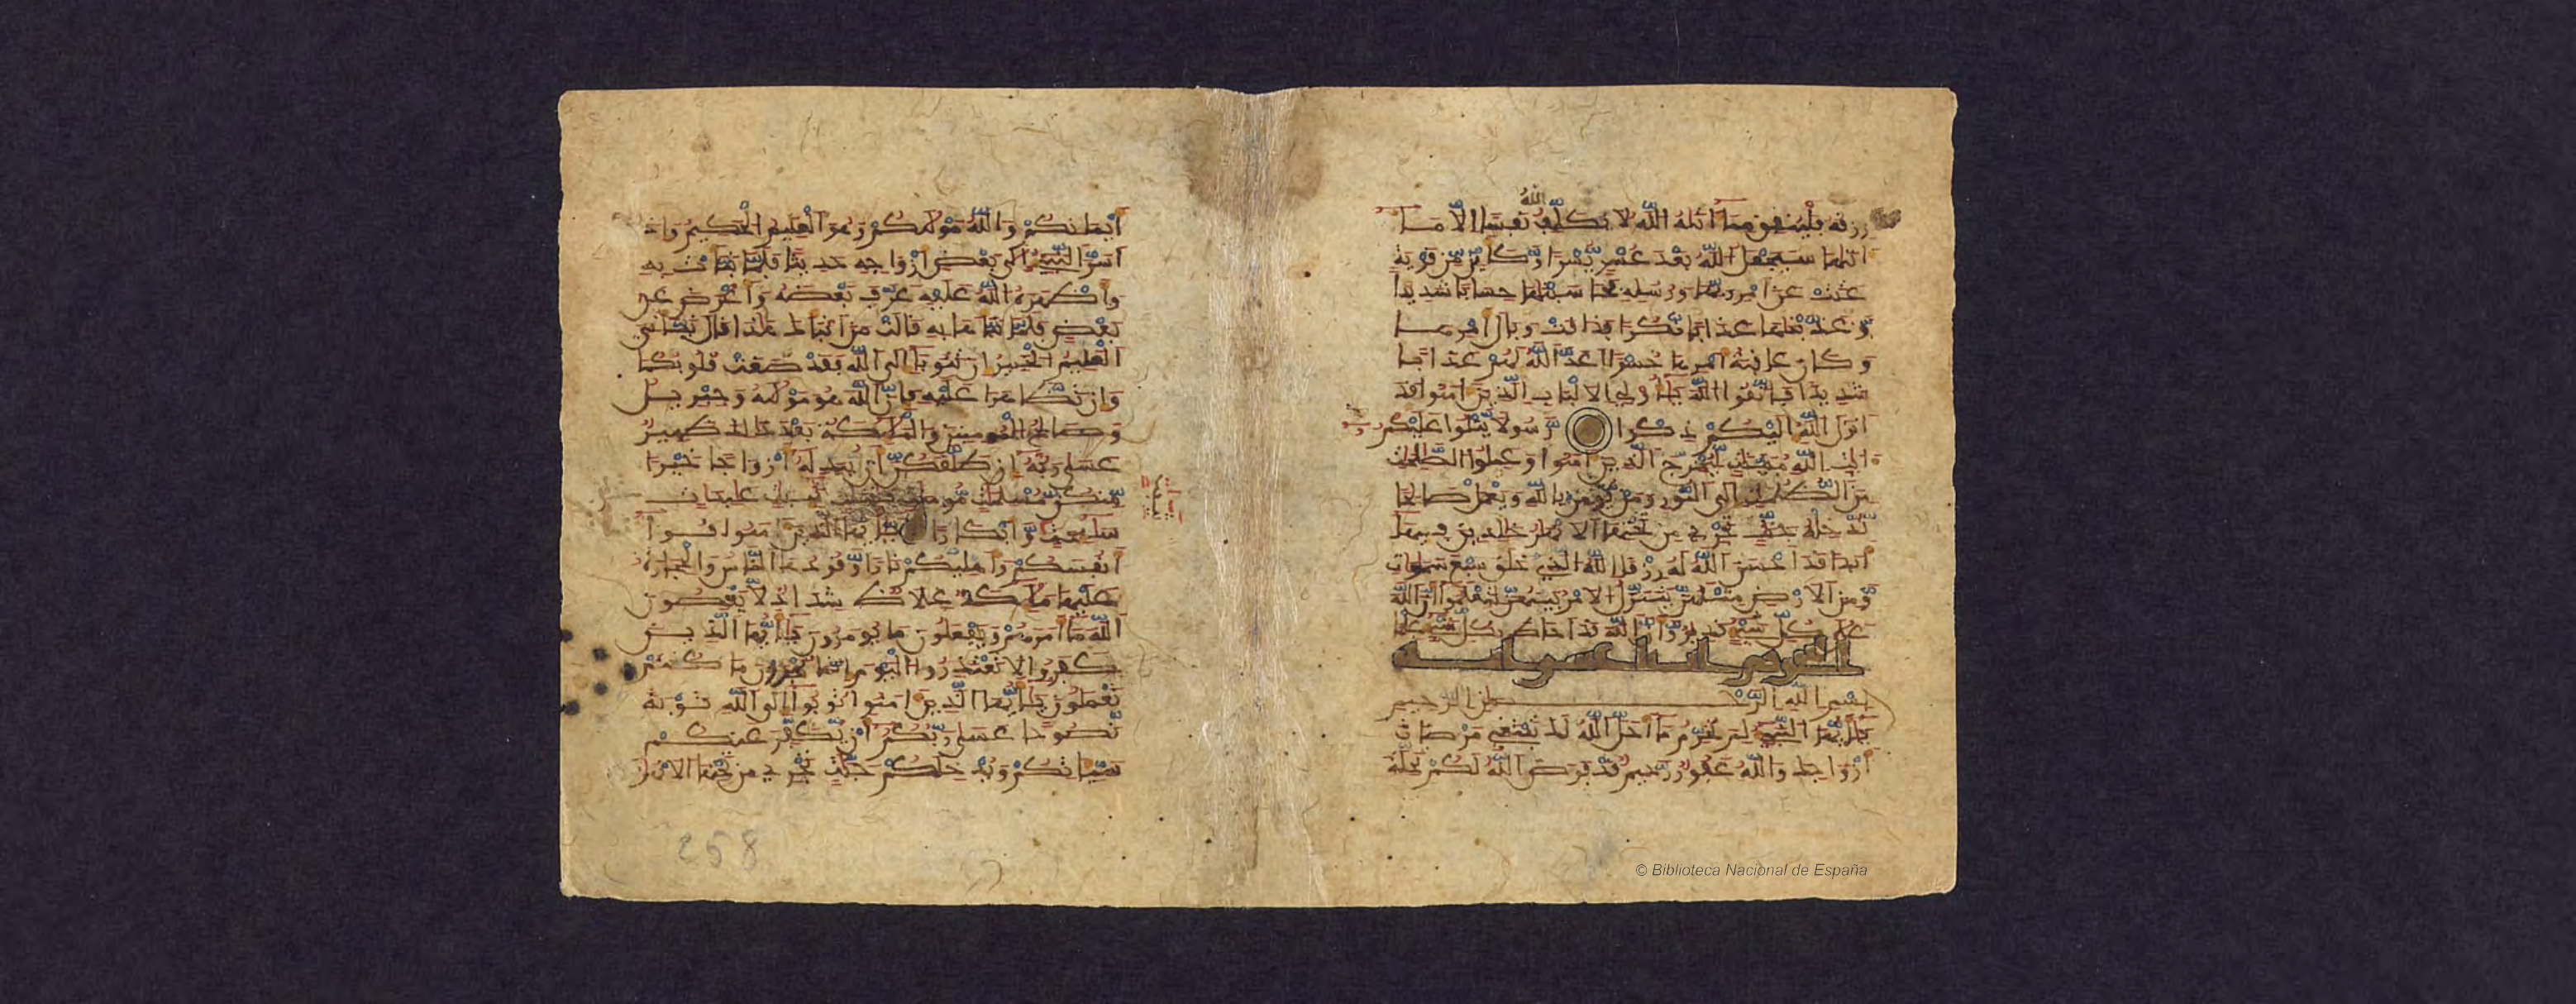 رزقه فلينفق مما اتيه الله لا يكلف الله نفسا الا ما
اتيها سيجعل الله بعد عسر يسرا وكاين من قرية
عتت عن امر ربها ورسله فحاسبنها حسابا شديدا
وعذبنها عذابا نكرا فذاقت وبال امرها
وكان عاقبة امرها خسرا اعد الله لهم عذابا
شديدا فاتقوا الله ياولي الالباب الذين امنوا قد
انزل الله اليكم ذكرا رسولا يتلوا عليكم
ايت الله مبينت ليخرج الذين امنوا وعملوا الصلحت
من الظلمت الى النور ومن يومن بالله ويعمل صالحا
ندخله جنت تجري من تحتها الانهر خلدين فيها
ابدا قد احسن الله له رزقا الله الذي خلق سبع سموات
ومن الارض مثلهن يتنزل الامر بينهن لتعلموا ان الله
على كل شيء قدير وان الله قد احاط بكل شيء علما
التحريم
بسم الله الرحمن الرحيم
يايها النبي لم تحرم ما احل الله لك تبتغي مرضات
ازواجك والله غفور رحيم قد فرض الله لكم تحلة
ايمانكم والله موليكم وهو العليم الحكيم واذ
اسر النبيء الى بعض ازواجه حديثا فلما نبات به
واظهره الله عليه عرف بعضه واعرض عن
بعض فلما نباها به قالت من انباك هذا قال نباني
العليم الخبير ان تتوبا الى الله فقد صغت قلوبكما
وان تظاهرا عليه فان الله هو موليه وجبريل
وصالح المومنين والمليكة بعد ذلك ظهير
عسى ربه ان طلقكن ان يبدله ازواجا خيرا
منكن مسلمت مومنت قنتت تيبت عبدات
سيحت وابكارا يايها الذين امنوا قوا
انفسكم واهليكم نارا وقودها الناس والحجارة
عليها مليكة غلاظ شداد لا يعصون
الله ما امرهم ويفعلون ما يومرون يايها الذين
كفروا لا تعتذروا اليوم انما تجزون ما كنتم
تعملون يايها الذين امنوا توبوا الى الله توبة
نصوحا عسى ربكم ان يكفر عنكم
سياتكم ويدخلكم جنت تجري من تحتها الانهر
258
© Biblioteca Nacional de España